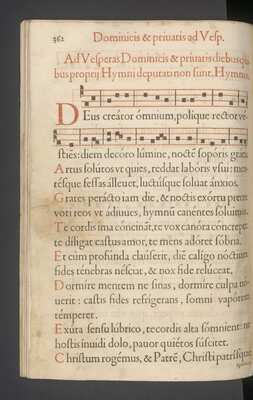 362 Dominicis & priuatis ad Vesp.
Ad Vesperas Dominicis & priuatis diebus, qui
bus proprij Hymni deputati non sunt. Hymnus.
DEus creátor ómnium, polique rector ve-
stiēs: diem decóro lúmine, noctē sopóris grátia.
Artus solútos vt quies, reddat labóris vsui: men-
tésque fessas álleuet, luctúsque soluat ánxios.
Grates perácto iam die, & noctis exórtu preces:
voti reos vt ádiuues, hymnū canéntes sóluimus.
Te cordis ima cóncinát, te vox canóra cóncrepet:
te díligat castus amor, te mens adóret sóbria.
Et cùm profúnda clauserit, diē calígo nóctium:
fides ténebras nésciat, & nox fide relúceat.
Dormíre mentem ne sinas, dormíre culpa nó-
uerit: castis fides refrígerans, somni vapórem
témperet.
Exúta sensu lúbrico, te cordis alta sómnient: ne
hostis ínuidi dolo, pauor quiétos súscitet.
Christum rogémus, & Patrē, Christi patrísque